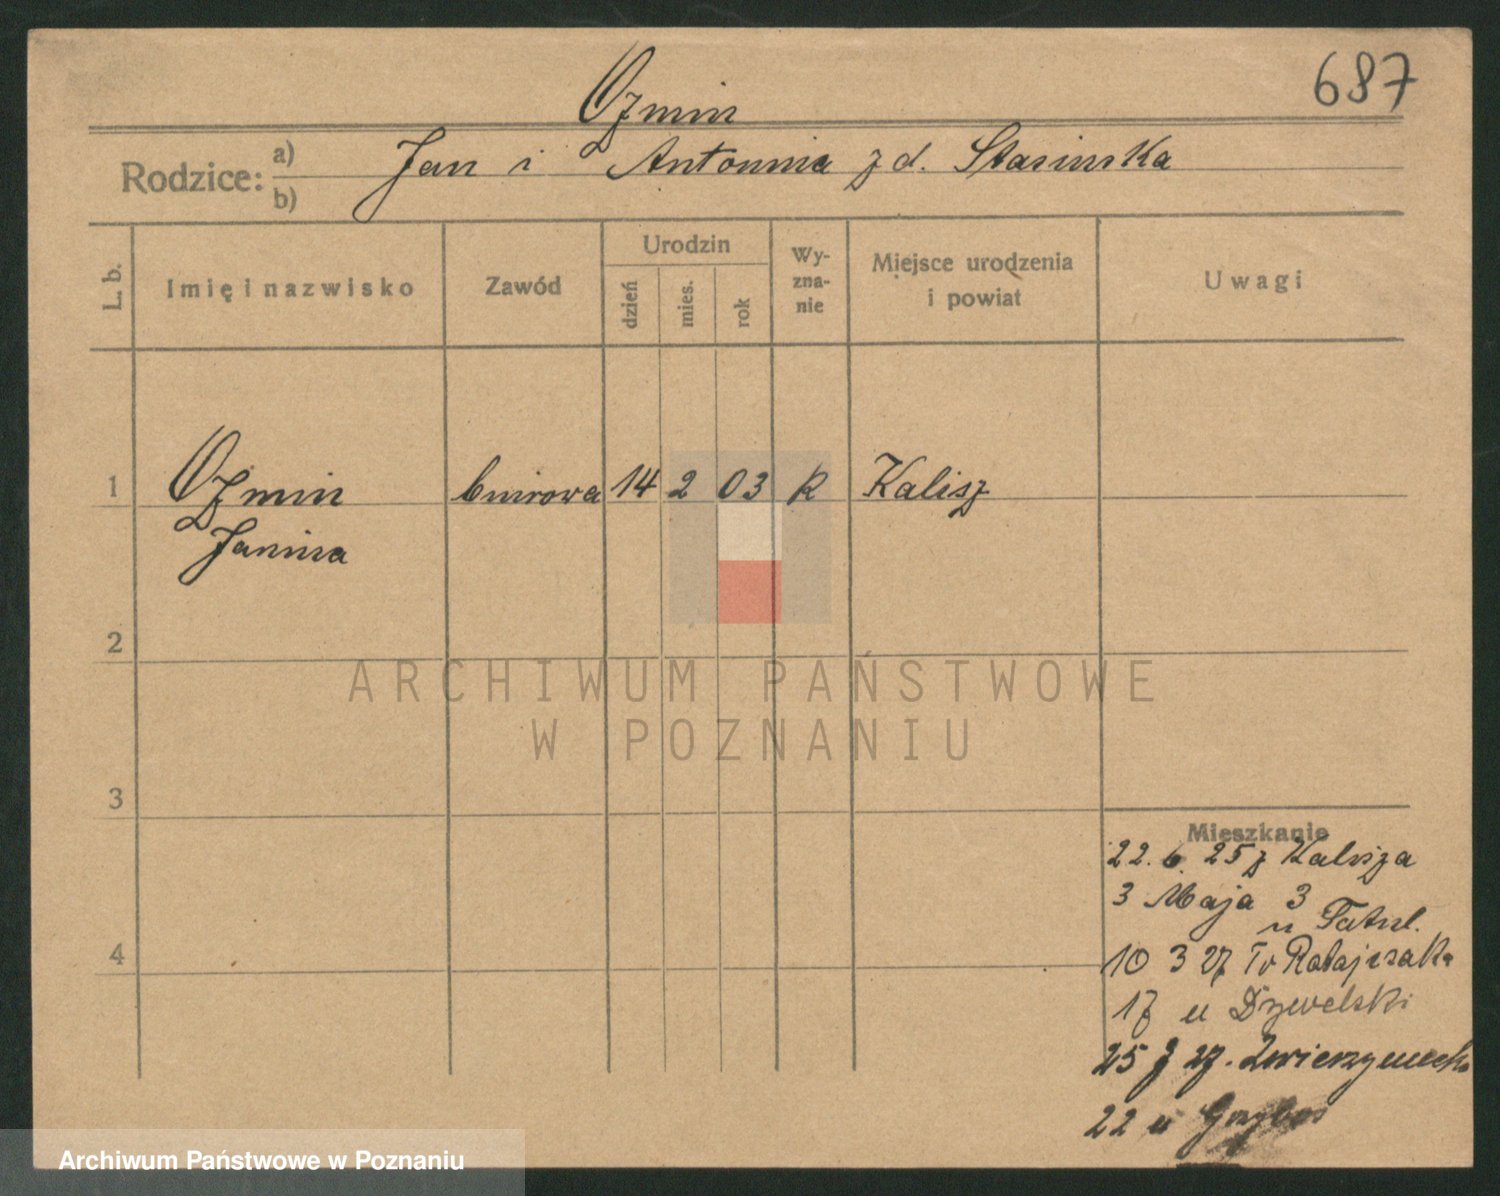 687
Ozmin
Rodzice: a) b)
Jan i Antonina z d. Stasinska
L. b.
Imię i nazwisko
Zawód
Urodzin
dzień
mies.
rok
Wy-
zna-
nie
Miejsce urodzenia
i powiat
Uwagi
1
Ozmin
Janina
biurowa
14
2
03
R
Kalisz
2
3
4
Mieszkanie
22. 6. 25 z Kalisza
3 Maja 3
u
10 3 27 Ratajczaka
17 u
25 27. Zwierzyniecka
22 u
ARCHIWUM PAŃSTWOWE
W POZNANIU
Archiwum Państwowe w Poznaniu